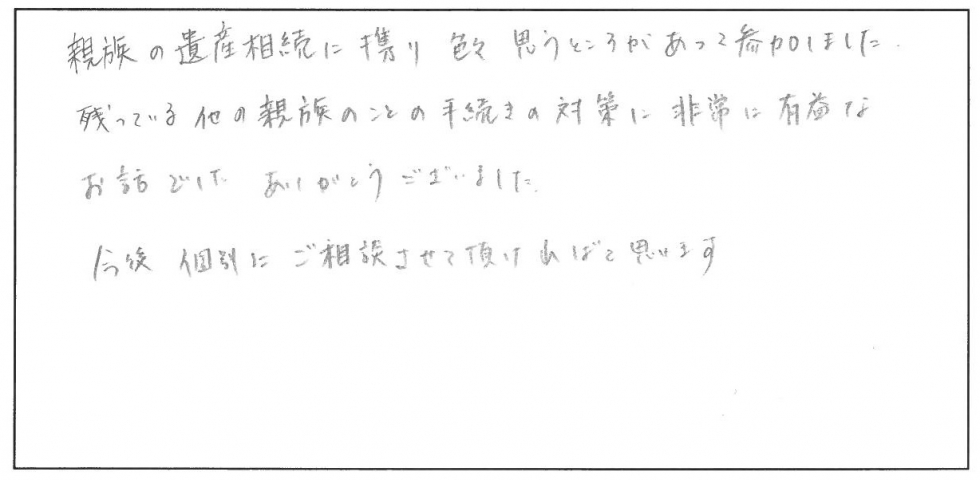 親族の遺産相続に携り 色々 思うところがあって参加しました.
残っている他の親族のことの手続きの対策に非常に有益な
お話でした ありがとうございました.
今後 個別にご相談させて頂ければと思います